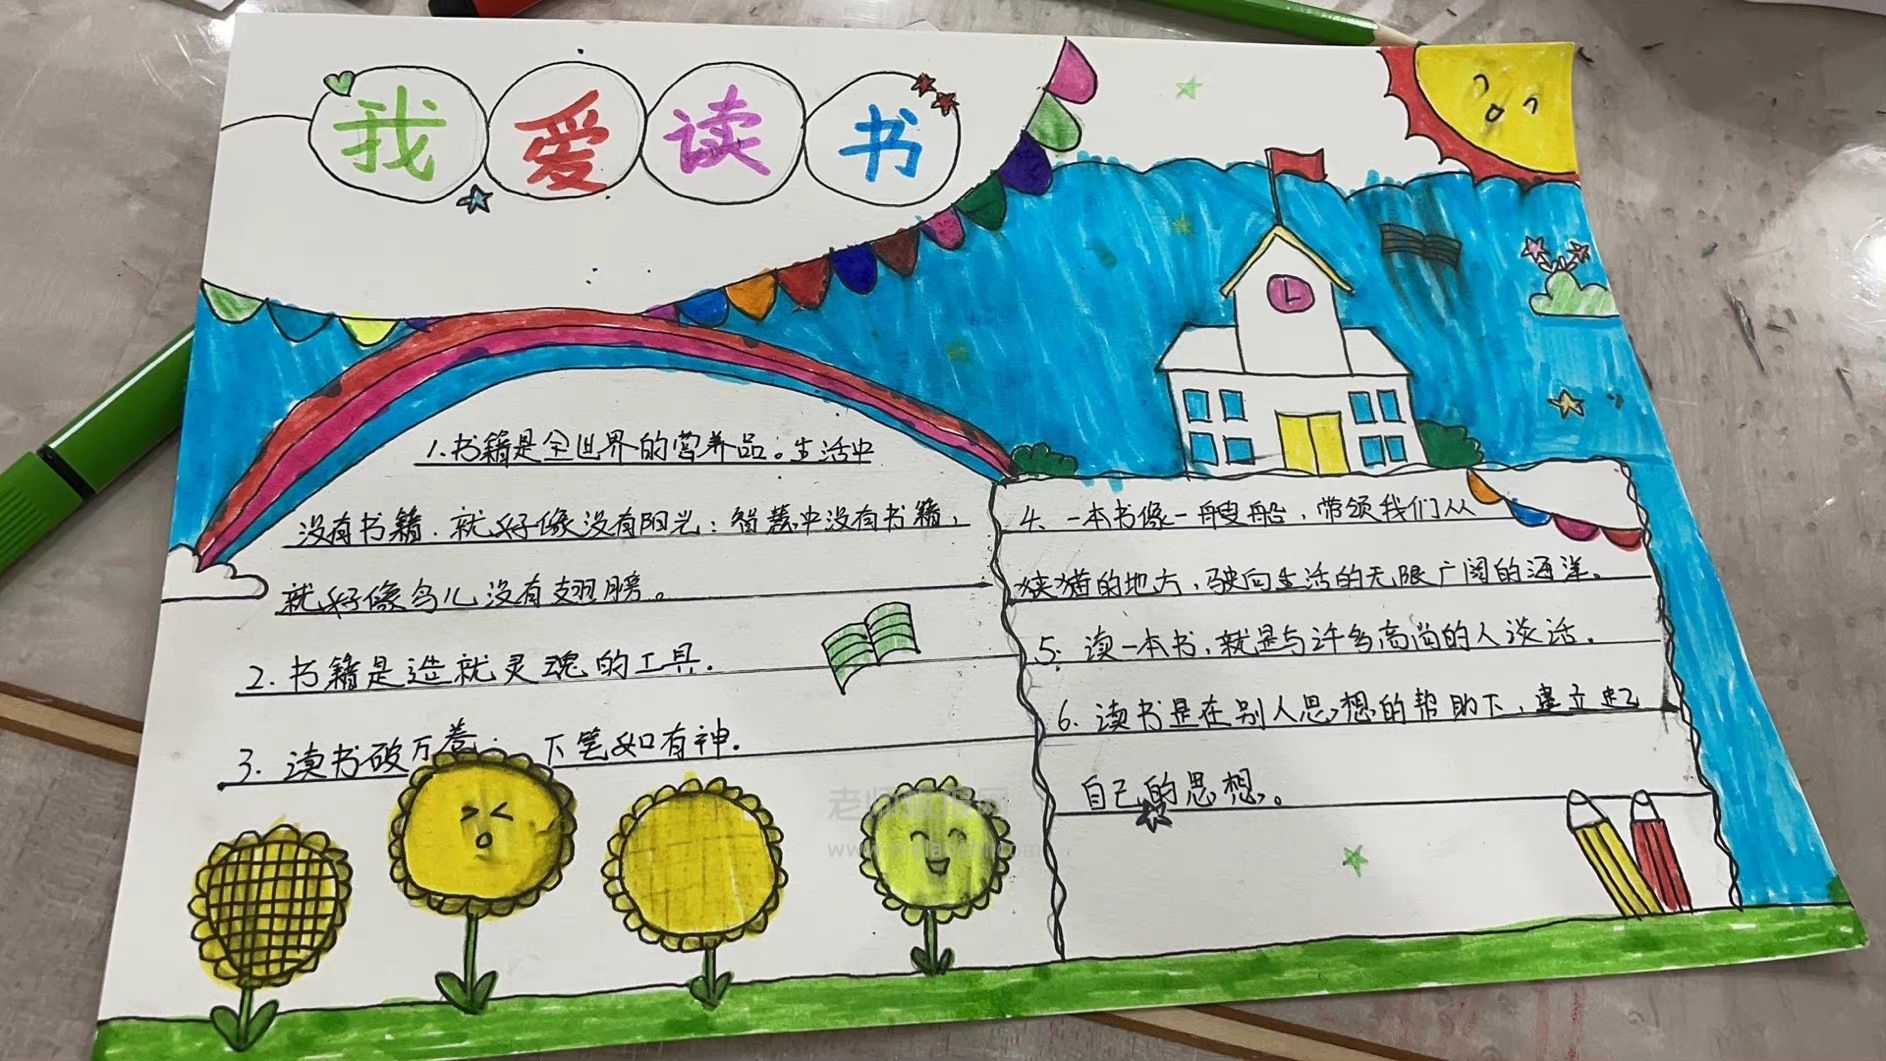 我爱读书
1.书籍是全世界的营养品。生活中
没有书籍.就好像没有阳光;智慧中没有书籍,
就好像鸟儿没有翅膀。
2.书籍是造就灵魂的工具.
3.读书破万卷. 下笔如有神.
4.一本书像一艘船,带领我们从
狭猫的地方,驶向生活的无限广阔的海洋。
5.读一本书,就是与许多高尚的人谈话.
6.读书是在别人思想的帮助下,建立起
自己的思想。